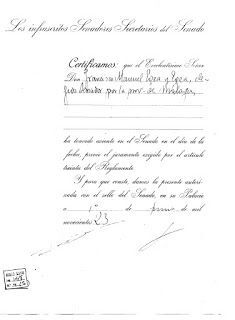 Los infrascritos Senadores Secretarios del Senado
Certificamos: que el Excelentísimo Señor
Don Francisco Manuel
Senador por la prov. de Málaga,
ha tomado asiento en el Senado en el día de la
fecha, previo el juramento exigido por el artículo
treinta del Reglamento.
Y para que conste, damos la presente autori-
zada con el sello del Senado, en su Palacio
a 1º de de mil
novecientos 23